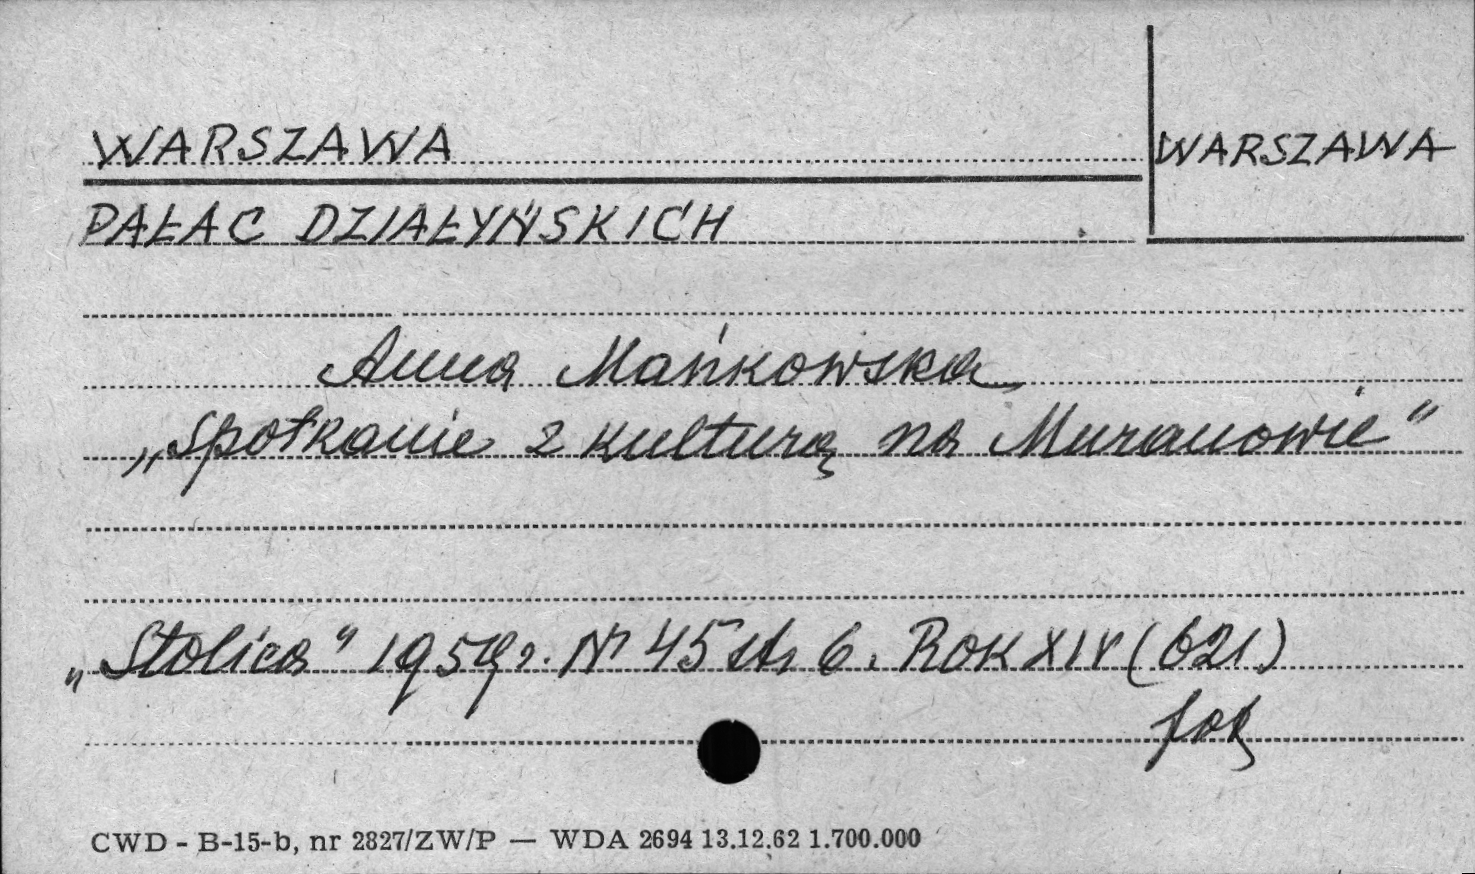 WARSZAWA
WARSZAWA
PAŁAC DZIAŁYŃSKICH
Anna Mańkowska
„Spotkanie z kulturą na Muranowie"
„Stolica" 1959 r. Nr 45 str 6. Rok XIV (621)
fot
CWD - B-15-b, nr 2827/ZW/P — WDA 2694 13.12.62 1.700.000